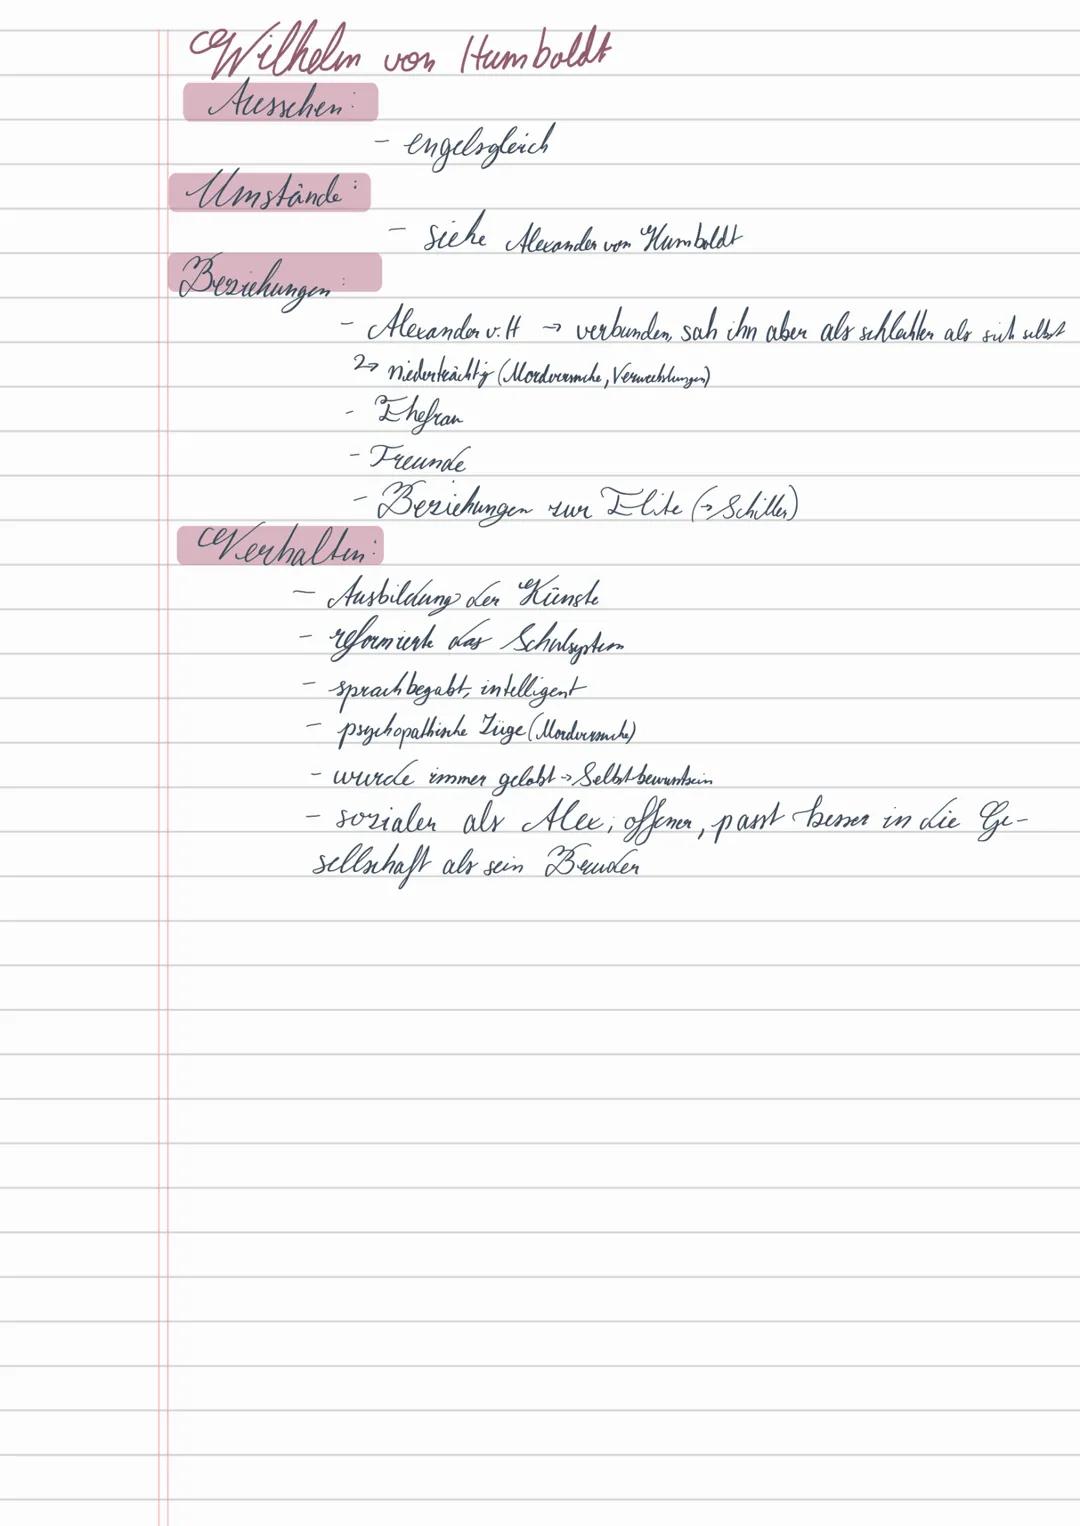 Wilhelm von Humboldt
Aussehen:
- engelsgleich
Umstände:
- siehe Alexander von Humboldt
Beziehungen:
- Alexander v. H → verbunden, sah ihn aber als schlechter als sich selbst
↳ niederträchtig (Mordversuche, Verwechslungen)
- Ehefrau
- Freunde
- Beziehungen zur Elite (→ Schiller)
Verhalten:
- Ausbildung der Künste
- reformierte das Schulsystem
- sprachbegabt, intelligent
- psychopathische Züge (Mordversuche)
- wurde immer gelobt → Selbstbewusstsein
- sozialer als Alex, offener, passt besser in die Ge-
sellschaft als sein Bruder